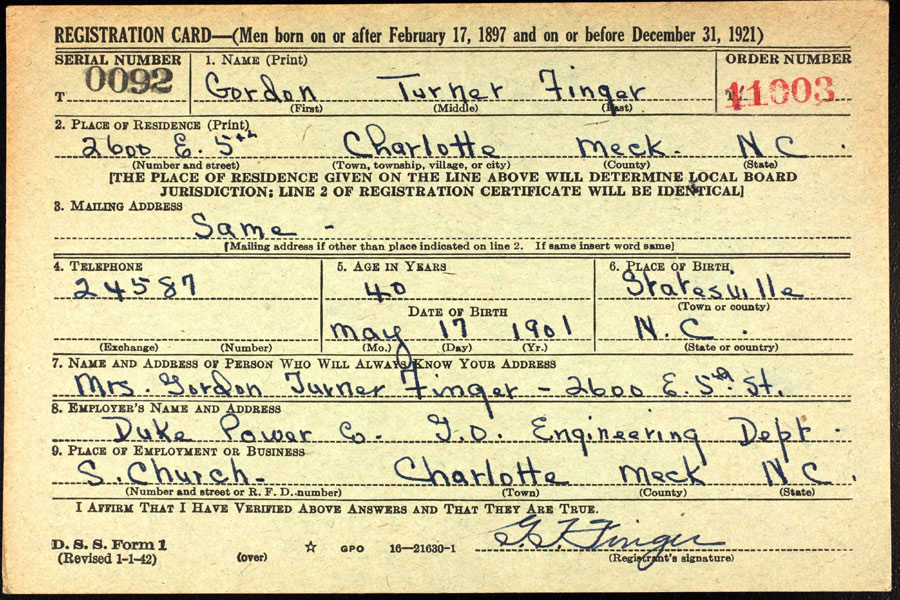 REGISTRATION CARD—(Men born on or after February 17, 1897 and on or before December 31, 1921)
SERIAL NUMBER 1. NAME (Print) ORDER NUMBER
T 0092 Gordon Turner Finger 11003
(First) (Middle) (Last)
2. PLACE OF RESIDENCE (Print)
2600 E. 5th Charlotte Meck. N C .
(Number and street) (Town, township, village, or city) (County) (State)
[THE PLACE OF RESIDENCE GIVEN ON THE LINE ABOVE WILL DETERMINE LOCAL BOARD
JURISDICTION; LINE 2 OF REGISTRATION CERTIFICATE WILL BE IDENTICAL]
3. MAILING ADDRESS
Same -
[Mailing address if other than place indicated on line 2. If same insert word same]
4. TELEPHONE 5. AGE IN YEARS 6. PLACE OF BIRTH
24587 40 Statesville
(Town or county)
DATE OF BIRTH
May 17 1901 N.C.
(Exchange) (Number) (Mo.) (Day) (Yr.) (State or country)
7. NAME AND ADDRESS OF PERSON WHO WILL ALWAYS KNOW YOUR ADDRESS
Mrs. Gordon Turner Finger - 2600 E. 5th. St.
8. EMPLOYER'S NAME AND ADDRESS
Duke Power Co. G.O. Engineering Dept.
9. PLACE OF EMPLOYMENT OR BUSINESS
S. Church. Charlotte Meck N C .
(Number and street or R. F. D. number) (Town) (County) (State)
I AFFIRM THAT I HAVE VERIFIED ABOVE ANSWERS AND THAT THEY ARE TRUE.
G.T. Finger
D. S. S. Form 1
(Revised 1-1-42) (over) ☆ GPO 16—21630-1 (Registrant's signature)